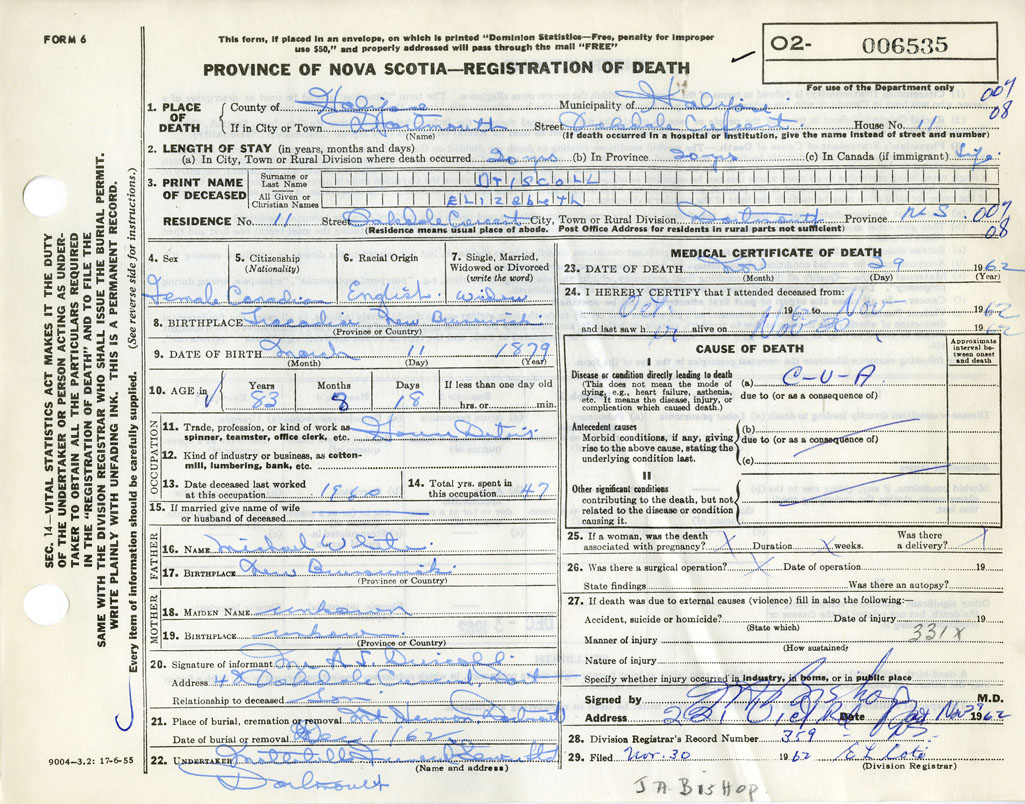 FORM 6
This form, if placed in an envelope, on which is printed "Dominion Statistics—Free, penalty for improper
use $50," and properly addressed will pass through the mail "FREE"
O2- 006535
PROVINCE OF NOVA SCOTIA—REGISTRATION OF DEATH
For use of the Department only
1. PLACE OF DEATH
County of Halifax Municipality of Halifax 007
If in City or Town Dartmouth Street Oakdale Crescent House No. 11 08
(Name) (If death occurred in a hospital or institution, give the name instead of street and number)
2. LENGTH OF STAY (in years, months and days)
(a) In City, Town or Rural Division where death occurred 20 yrs (b) In Province 20 yrs (c) In Canada (if immigrant) Life
3. PRINT NAME OF DECEASED
Surname or Last Name DRISCOLL
All Given or Christian Names ELIZABETH
RESIDENCE No. 11 Street Oakdale Crescent City, Town or Rural Division Dartmouth Province N.S. 007
(Residence means usual place of abode. Post Office Address for residents in rural parts not sufficient) 08
4. Sex
Female
5. Citizenship
(Nationality)
Canadian
6. Racial Origin
English
7. Single, Married,
Widowed or Divorced
(write the word)
Widow
8. BIRTHPLACE Tracadie New Brunswick
(Province or Country)
9. DATE OF BIRTH March 11 1879
(Month) (Day) (Year)
10. AGE in
Years Months Days If less than one day old
83 8 18 hrs. or min.
OCCUPATION
11. Trade, profession, or kind of work as
spinner, teamster, office clerk, etc. House Duties
12. Kind of industry or business, as cotton-
mill, lumbering, bank, etc.
13. Date deceased last worked
at this occupation 1960
14. Total yrs. spent in
this occupation 47
15. If married give name of wife
or husband of deceased
FATHER
16. NAME Michael White
17. BIRTHPLACE New Brunswick
(Province or Country)
MOTHER
18. MAIDEN NAME unknown
19. BIRTHPLACE unknown
(Province or Country)
20. Signature of informant Mr. A. S. Driscoll
Address 48 Oakdale Crescent, Dart
Relationship to deceased Son
21. Place of burial, cremation or removal Mt Hermon, Dartmouth
Date of burial or removal Dec 1/62
22. UNDERTAKER
(Name and address)
Dartmouth
MEDICAL CERTIFICATE OF DEATH
23. DATE OF DEATH Nov 29 1962
(Month) (Day) (Year)
24. I HEREBY CERTIFY that I attended deceased from:
Oct. 196 to Nov 1962
and last saw h er alive on Nov 20 1962
CAUSE OF DEATH
Approximate
interval be-
tween onset
and death
I
Disease or condition directly leading to death
(This does not mean the mode of
dying, e.g., heart failure, asthenia,
etc. It means the disease, injury, or
complication which caused death.)
(a) C-V-A
due to (or as a consequence of)
Antecedent causes
Morbid conditions, if any, giving
rise to the above cause, stating the
underlying condition last.
(b)
due to (or as a consequence of)
(c)
II
Other significant conditions
contributing to the death, but not
related to the disease or condition
causing it.
25. If a woman, was the death
associated with pregnancy? X Duration X weeks. Was there
a delivery? X
26. Was there a surgical operation? X Date of operation 19
State findings Was there an autopsy?
27. If death was due to external causes (violence) fill in also the following:—
Accident, suicide or homicide? Date of injury 19
(State which)
331X
Manner of injury
(How sustained)
Nature of injury
Specify whether injury occurred in industry, in home, or in public place
Signed by Bishop M.D.
Address Date Nov 29 1962
28. Division Registrar's Record Number 359
29. Filed Nov. 30 1962
(Division Registrar)
J A BISHOP
SEC. 14—VITAL STATISTICS ACT MAKES IT THE DUTY
OF THE UNDERTAKER OR PERSON ACTING AS UNDER-
TAKER TO OBTAIN ALL THE PARTICULARS REQUIRED
IN THE "REGISTRATION OF DEATH" AND TO FILE THE
SAME WITH THE DIVISION REGISTRAR WHO SHALL ISSUE THE BURIAL PERMIT.
WRITE PLAINLY WITH UNFADING INK. THIS IS A PERMANENT RECORD.
Every item of information should be carefully supplied. (See reverse side for instructions.)
9004—3.2: 17-6-55